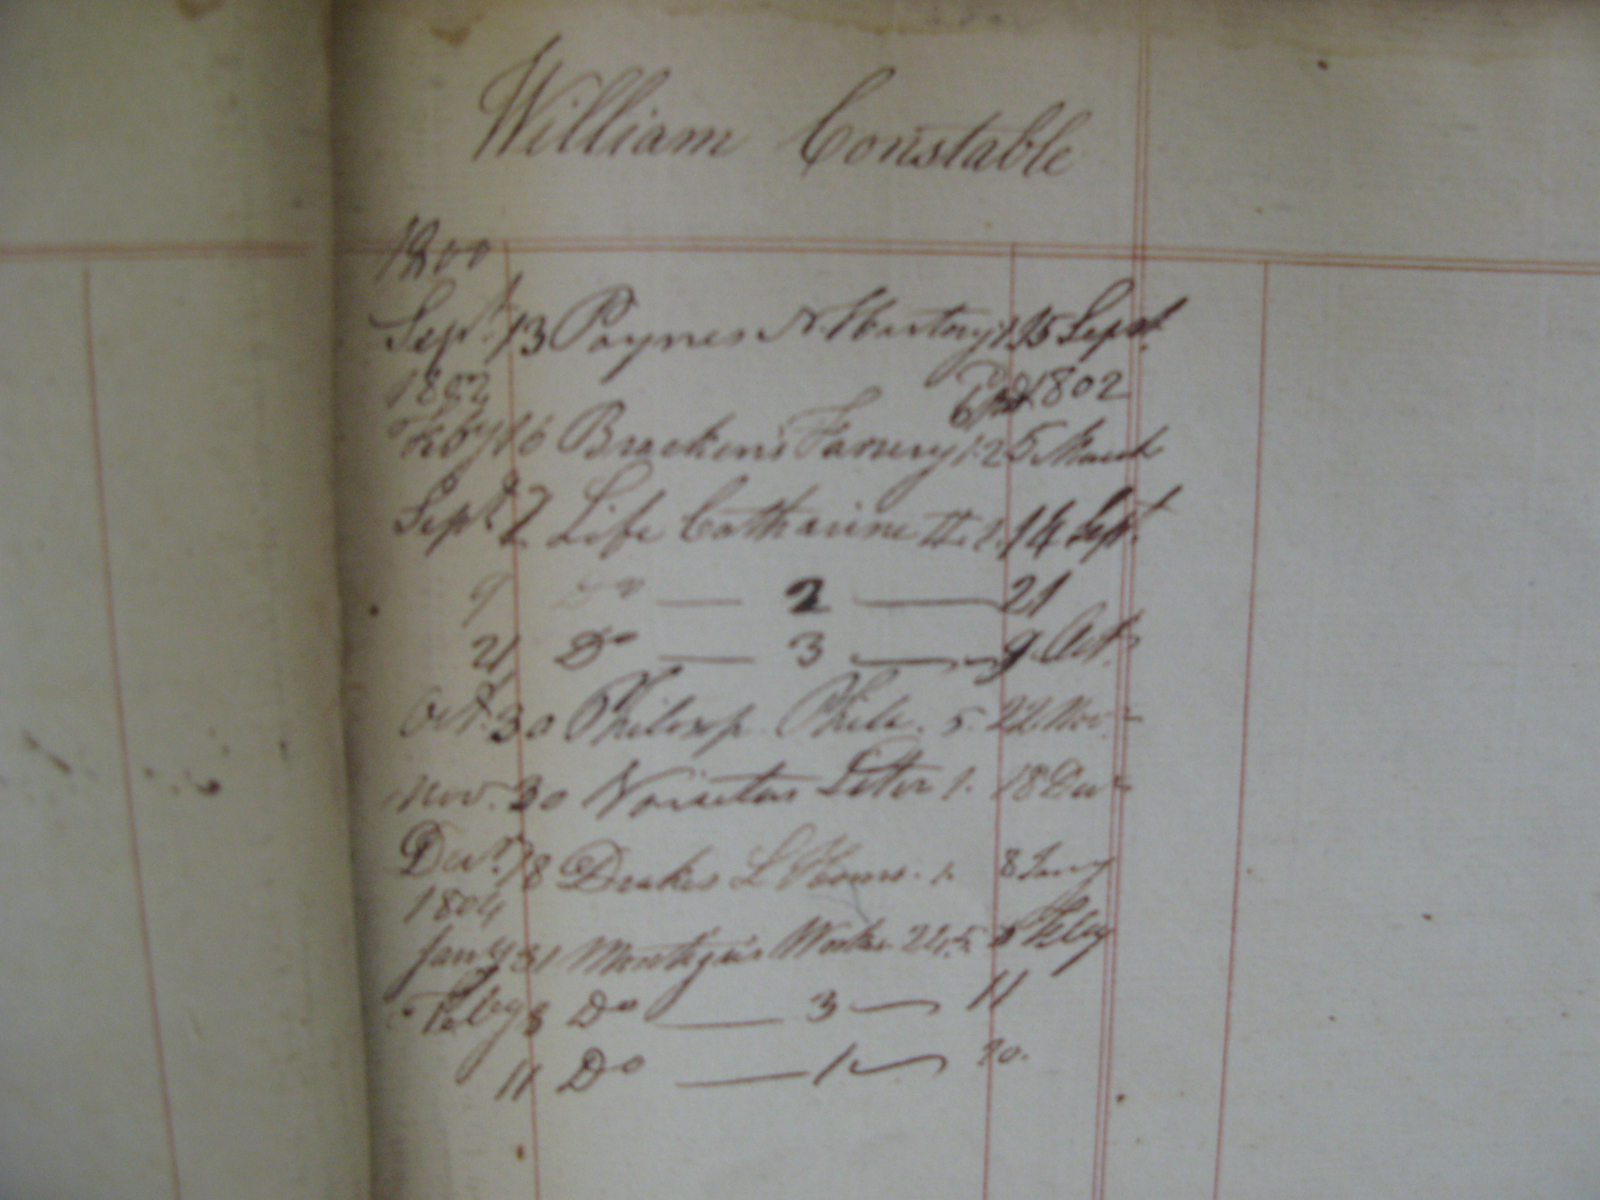 William Constable
1800
Sept. 13 Paynes N. History 1. 15 Sept.
1802
6 Pd 1802
Feby 16 Bracken's Farriery 1. 25 March
Sept. 7 Life Catharine II. 1. 14 Sept.
9 Do — 2 — 21
21 Do — 3 — 9 Oct.
Oct. 30 Philosop. 5. 22 Nov.
Nov. 30 1. 18 Decr
Decr. 18 Drakes 1. 8 Jany
1804
Jany 31 Works Feby
Feby 8 Do — 3 — 11
11 Do — 1 — 20.